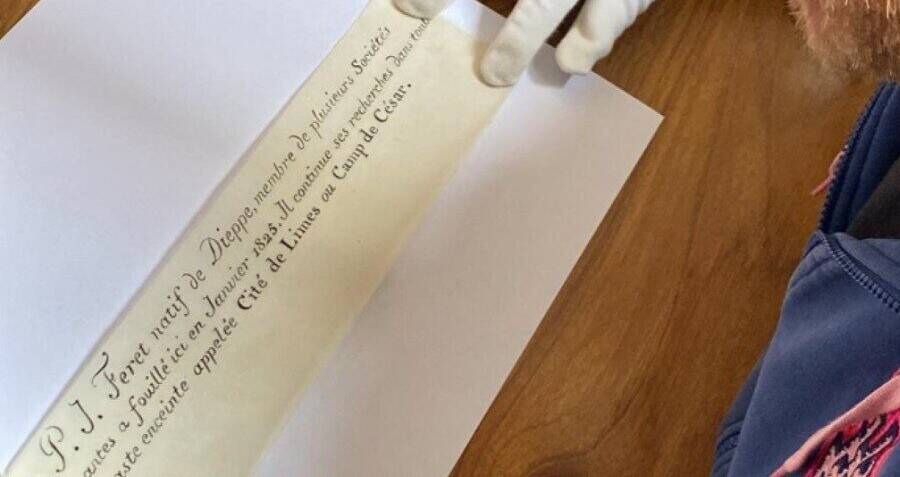 P. J. Feret natif de Dieppe, membre de plusieurs Sociétés
a fouillé ici en Janvier 1825. Il continue ses recherches dans
enceinte appelée Cité de Limes ou Camp de César.